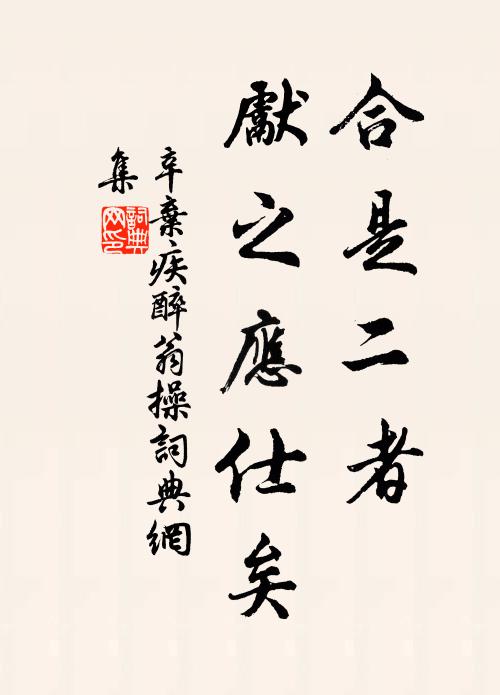 合是二者
獻之應仕矣
辛棄疾醉翁操詞典網
集
詞典网印